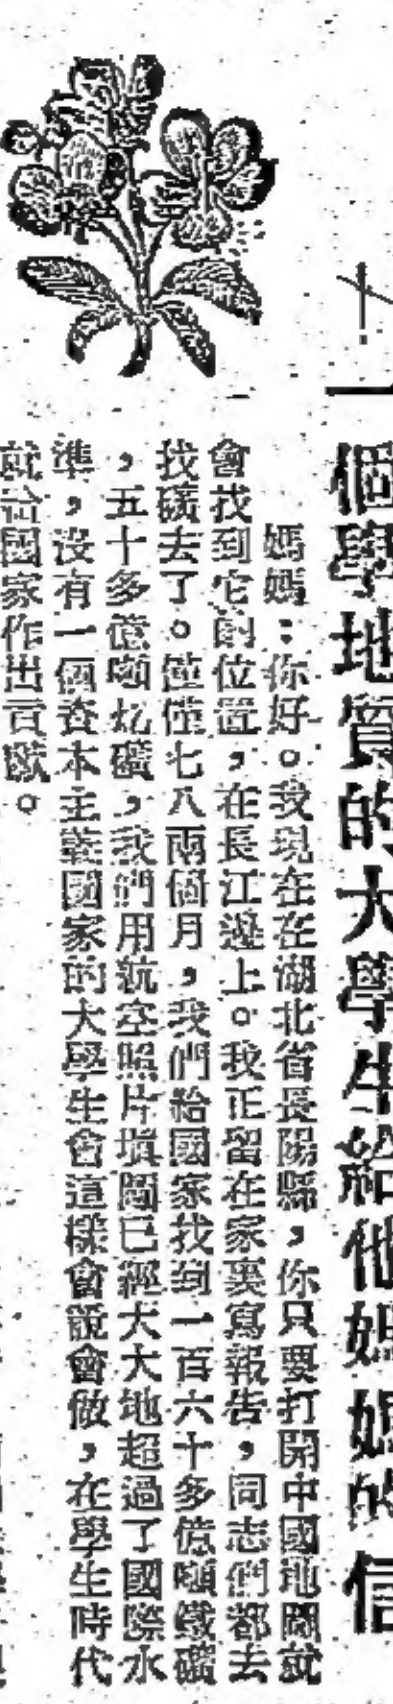 一個學地質的大學生給他媽媽的信
媽媽：你好。我現在在湖北省長陽縣，你只要打開中國地圖就
會找到它的位置，在長江邊上。我正留在家裏寫報告，同志們都去
找礦去了。僅僅七八兩個月，我們給國家找到一百六十多億噸鐵礦
，五十多億噸 礦，我們用航空照片填圖已經大大地超過了國際水
準，沒有一個資本主義國家的大學生會這樣會說會做，在學生時代
就給國家作出貢獻。